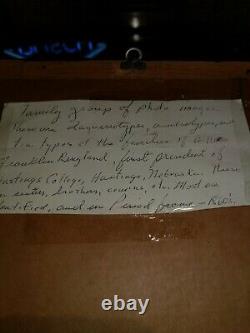 Family group of photo images
There are daguerreotypes, ambrotypes, and
tin types of the families of
Franklin Ringland, first president of
Hastings College, Hastings, Nebraska. These
sisters, brothers, cousins, etc. Most are
identified, and in Period frame - Rich.
ebay